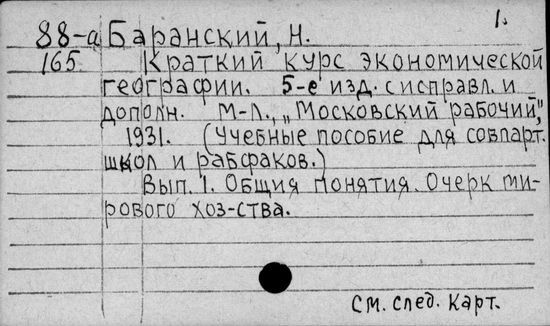 1.
88-а Баранский, Н.
165. Краткий курс экономической
географии. 5-е изд. с исправл. и
дополн. М-Л., „Московский рабочий",
1931. (Учебные пособие для совпарт.
школ и рабфаков.)
Вып. 1. Общия понятия. Очерк ми-
рового хоз-ства.
См. след. карт.